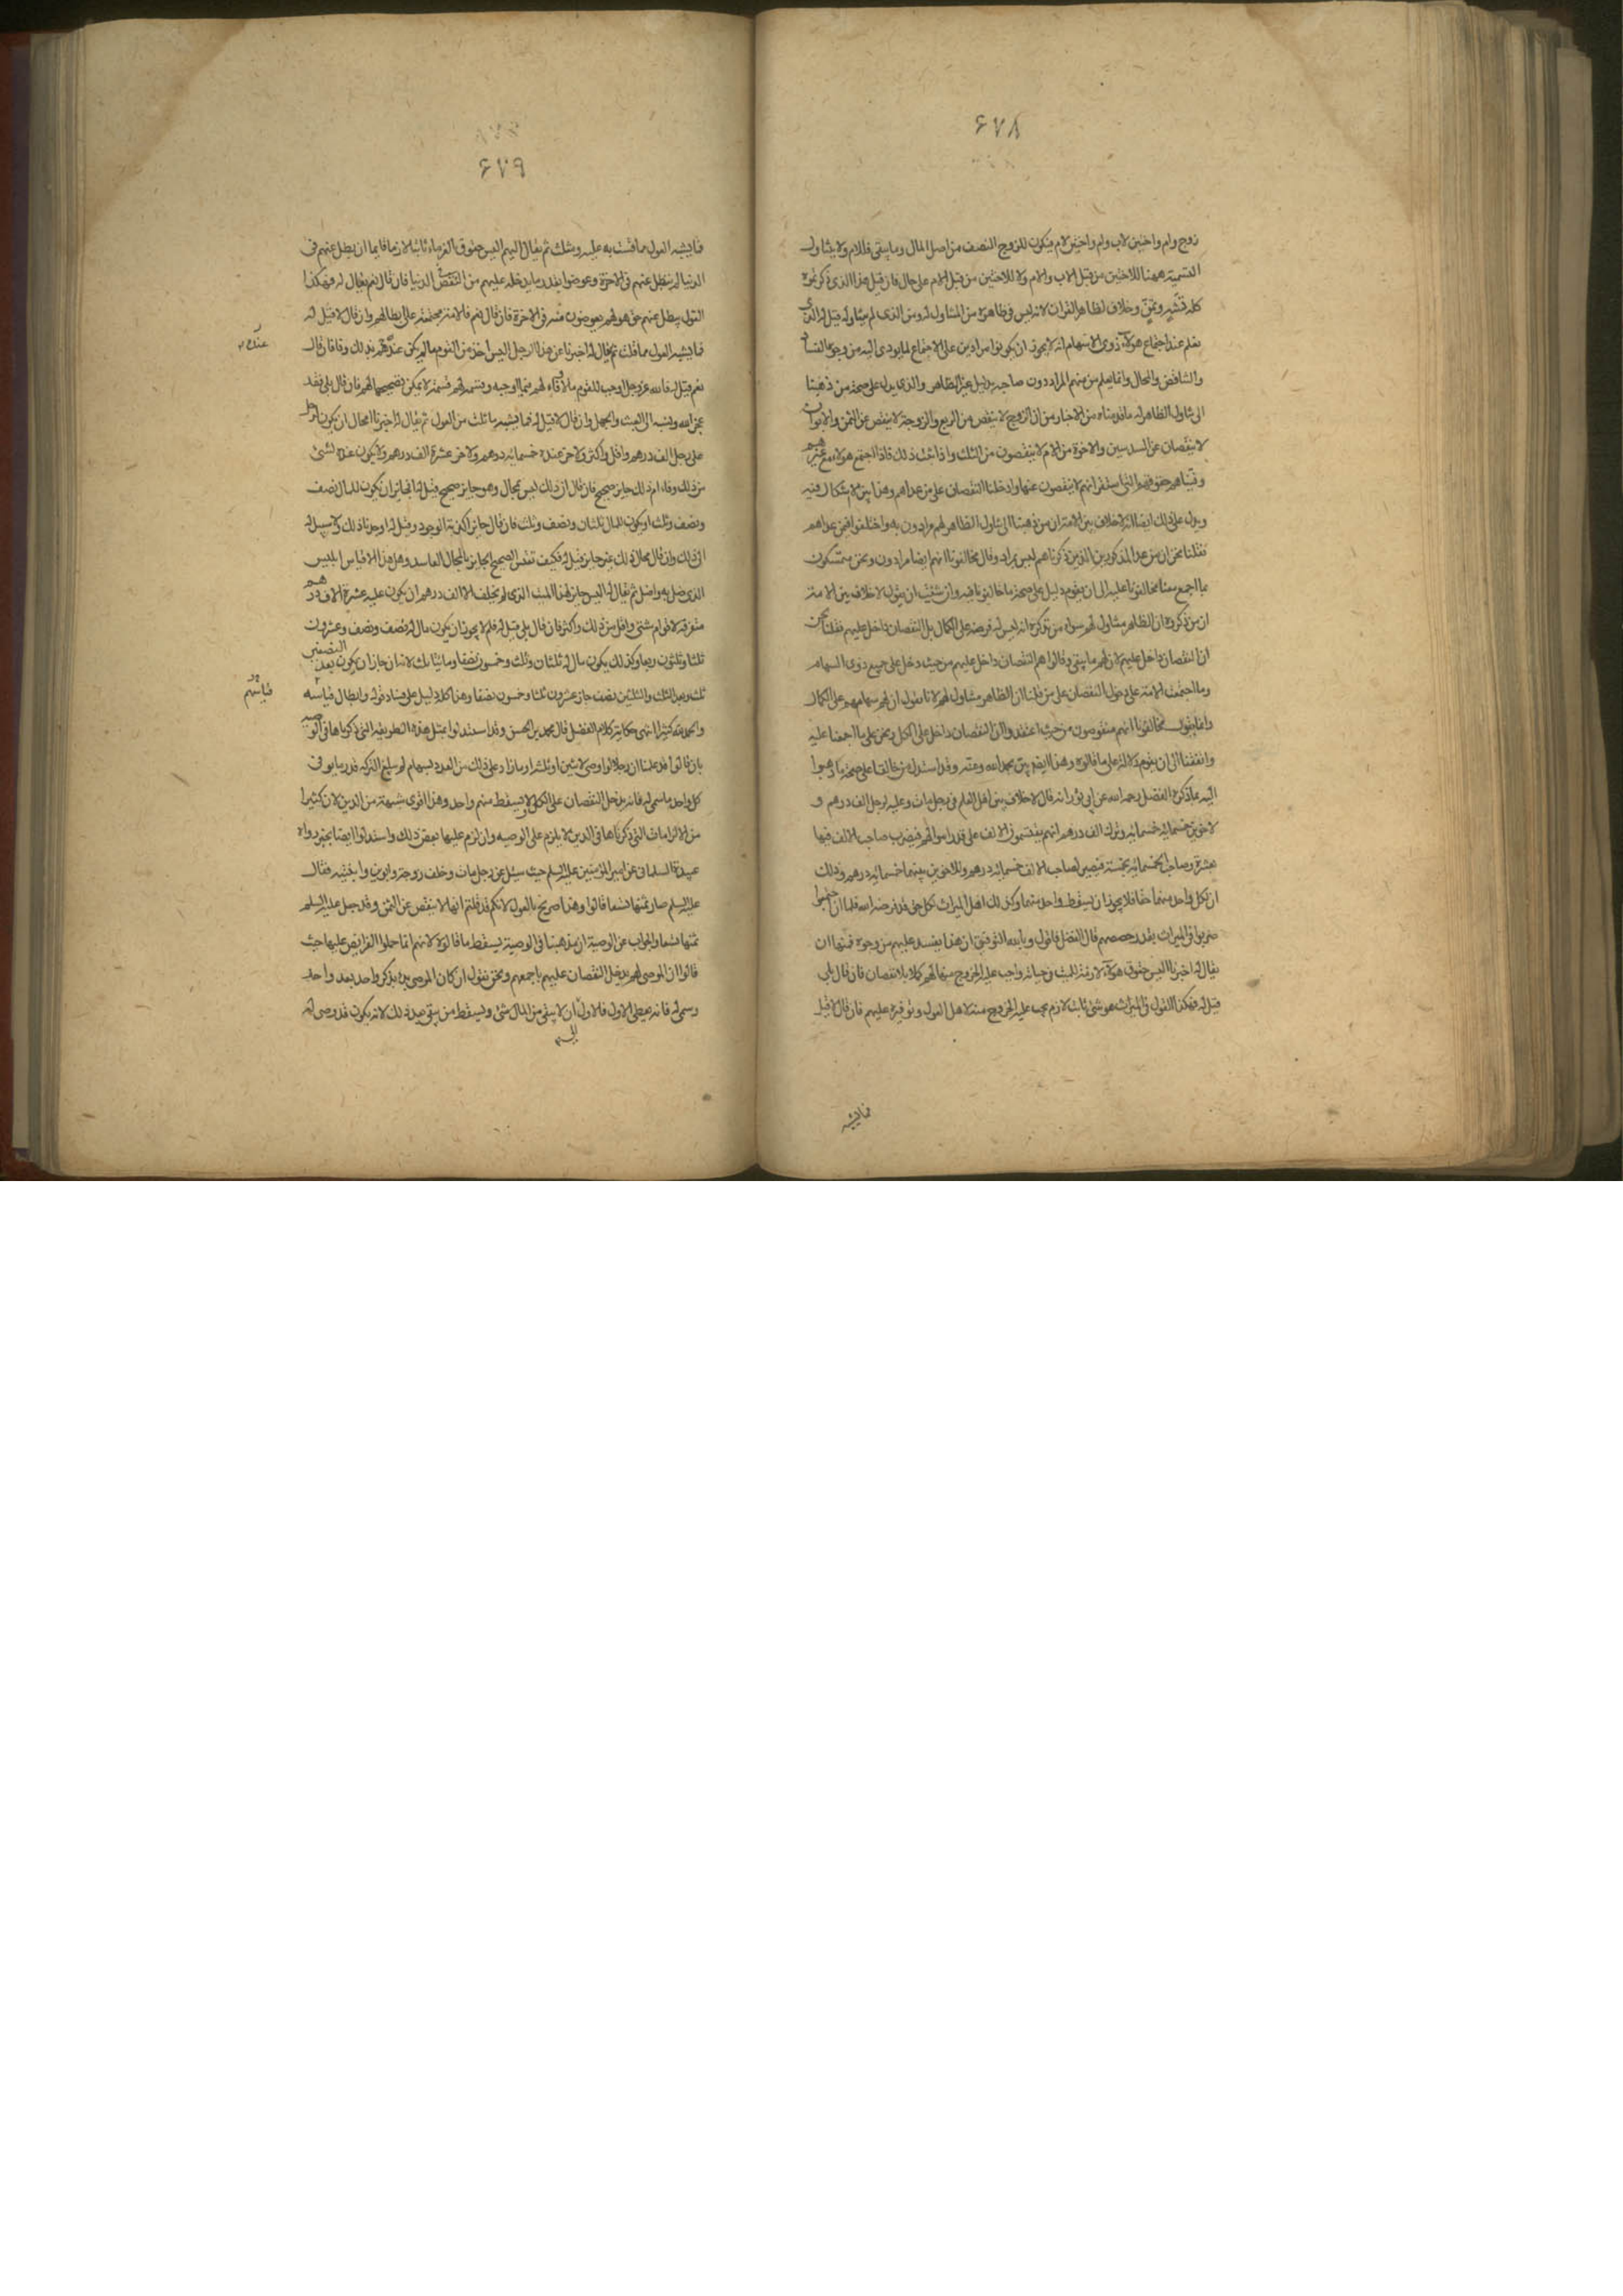 ۶۷۸
زوج وام واختين لاب وام واختين لام فيكون للزوج النصف من اصل المال وما يبقى فللام ولا يتناول
التسمية ههنا للاختين من قبل الاب والام ولا للاختين من قبل الام على حال فان قيل هذا الذى ذكرتموه
كله تشه وتمن وخلاف لظاهر القران لانه ليس فى ظاهره من المتناول له ومن الذى لم يتناوله قيل له الذى
يعلم عند اجتماع هولاء ذوى الاسهام انه لا يجوز ان يكونوا مرادين على الاجتماع لما يودى اليه من وجوه الفساد
والتناقض والمحال وانما يعلم من منهم المراد دون صاحبه بدليل غير الظاهر والذى يدل على صحة من ذهبنا
الى تناول الظاهر له ما قدمناه من الاخبار من ان الزوج لا ينقص من الربع والزوجة لا ينقص عن الثمن والابوان
لا ينقصان عن السدسين والاخوة من الام لا ينقصون من الثلث واذا ثبت ذلك فاذا اجتمع هولاء مع غيرهم
وفيناهم حقوقهم التى استقر انهم لا ينقصون عنها وادخلنا النقصان على من عداهم وهذا بين لا اشكال فيه
ويدل على ذلك ايضا انه لا خلاف بين الامة ان من ذهبنا الى تناول الظاهر لهم مرادون به واختلفوا فيمن عداهم
فقلنا نحن ان من عدا المذكورين الذين ذكرناهم ليس بمراد وقال مخالفونا انهم ايضا مرادون ونحن متمسكون
بما اجمع معنا مخالفونا عليه الى ان يقوم دليل على صحة ما خالفونا فيه وان شئت ان يقول لا خلاف بين الامة
ان من ذكروه ان الظاهر متناول لهم سواه من تذكره انه ليس له فرضه على الكمال بل النقصان داخل عليهم فقلنا نحن
ان النقصان داخل عليهم لان لهم ما يبقى وقالوا هم النقصان داخل عليهم من حيث دخل على جميع ذوى السهام
وما اجتمعت الامة على دخول النقصان على من قلنا ان الظاهر متناول لهم لانا نقول ان لهم سهامهم على الكمال
وانما يقول مخالفونا انهم منقوصون من حيث اعتقدوا ان النقصان داخل على الكل ونحن على ما اجمعنا عليه
واتفقنا الى ان يقوم دلالة على ما قالوه وهذا ايضا بين بحمد الله ومنه وقد استدل من خالفنا على صحة ما ذهبوا
اليه بما ذكره الفضل رحمه الله عن ابى ثور انه قال لا خلاف بين اهل العلم فى رجل مات وعليه لرجل الف درهم و
لاخوين خمسمائه خمسمائه وترك الف درهم انهم يقتسمون الالف على قدر اموالهم فيضرب صاحب الالف فيها
بعشرة وصاحب الخمسمائه بخمسة فيصير لصاحب الالف خمسمائه درهم وللاخوين بينهما خمسمائه درهم وذلك
ان لكل واحد منهما حقا فلا يجوز ان يسقط واحد منهما وكذلك اهل الميراث لكل حق قد فرضه الله فلما ان اجتمعوا
ضربوا فى الميراث بقدر حصصهم قال الفضل فاقول وبالله التوفيق ان هذا يفسد عليهم من وجوه فمنها ان
يقال له اخبرنا اليس حقوق هولاء لازمة للميت فى حياته واجب عليه الخروج منها لهم كملا بلا نقصان فان قال بلى
قيل له فهكذا القول فى الميراث هو شئ ثابت لازم يجب عليه الخروج منه لاهل العول وتوفيره عليهم فان قال لا قيل
فما يشبه
۶۷۹
فما يشبه العول مما شبهت به عليه وشك ثم يقال اليهم اليس حقوق الغرماء ثابتة لازمة قايمة ان يطل عنهم فى
الدنيا لم يبطل عنهم فى الاخرة وعوضوا بقدر ما يدخله عليهم من النقص الدنيا فان قال نعم يقال له فهكذا
القول يبطل عنهم حق هو لهم يعوضون منه فى الاخرة فان قال نعم فالامة مجتمعة على ابطالهم وان قال لا قيل له
فما يشبه العول مما قلت ثم يقال له اخبرنا عن هذا الرجل اليس اخذ من القوم ما لم يكن عنده لهم بذلك وفا فان قال
عنده
نعم قيل له فالله عز وجل اوجب للقوم ما لا وفاء لهم فيما اوجبه وقسمه لهم قسمة لا يمكن تصحيحها لهم فان قال بلى فقد
عجز الله ونسبه الى العبث والجهل وان قال لا قيل له فما يشبه ما قلت من العول ثم يقال له اخبرنا المحال ان يكون لرجل
على رجل الف درهم واقل واكثر ولاخر عنده خمسمائه درهم ولاخر عشرة الف درهم ولا يكون عنده لشئ
من ذلك وفاء ام ذلك جايز صحيح فان قال ان ذلك ليس بمحال وهو جايز صحيح قيل له افجايز ان يكون للمال نصف
ونصف وثلث او يكون للمال ثلثان ونصف وثلث فان قال جايز اكذبته الوجود وقيل له اوجدنا ذلك ولا سبيل له
الى ذلك وان قال محال ذلك غير جايز قيل له فكيف تقيس الصحيح الجايز بالمحال الفاسد وهل هذا الا قياس ابليس
الذى ضل به واضل ثم يقال له اليس جايز لهذا الميت الذى لم يخلف الا الف درهم ان يكون عليه عشرة الاف درهم
متفرقه لاقوام شتى واقل من ذلك واكثر فان قال بلى قيل له فلم لا يجوز ان يكون مال له نصف ونصف وعشرون
ثلثا وثلثون ربعا وكذلك يكون مال له ثلثان وثلث وخمسون نصفا وما يتنا بك لانه ان جاز ان يكون بعد النصفين
ثلث وبعد الثلث والثلثين نصف جاز عشرون ثلثا وخمسون نصفا وهذا كله دليل على فساد قوله وابطال قياسه
قياسهم
والحمد لله كثيرا انتهى حكاية كلام الفضل قال محمد بن الحسن وقد استدلوا بمثل هذه الطريقه التى ذكرناها فى الوصية
بان قالوا قد علمنا ان رجلا لو اوصى لاثنين او لثلثة او ما زاد على ذلك من العدد بسهام لم يبلغ التركه قدر ما يوفى
كل واحد ما سمى له فانه يدخل النقصان على الكل ولا يسقط منهم واحد وهذا اقوى شبهة من الدين لان كثيرا
من الالزامات التى ذكرناها فى الدين لا يلزم على الوصيه وان لزم عليها بعض ذلك واستدلوا ايضا بخبر رواه
عبيدة السلمانى عن امير المؤمنين عليه السلم حيث سئل عن رجل مات وخلف زوجة وابوين وابنتيه فقال
عليه السلم صار ثمنها تسعا قالوا وهذا صريح بالعول لانكم قد قلتم انها لا ينقص عن الثمن وقد جعل عليه السلم
ثمنها تسعا والجواب عن الوصية ان مذهبنا فى الوصية يسقط ما قالوه لانهم انما حملوا الفرايض عليها حيث
قالوا ان الموصى لهم يدخل النقصان عليهم باجمعهم ونحن نقول ان كان الموصى بدا بذكر واحد بعد واحد
وسمى له فانه يعطى الاول فالاول الى ان لا يبقى من المال شئ ويسقط من يبقى بعد ذلك لانه يكون قد وصى له